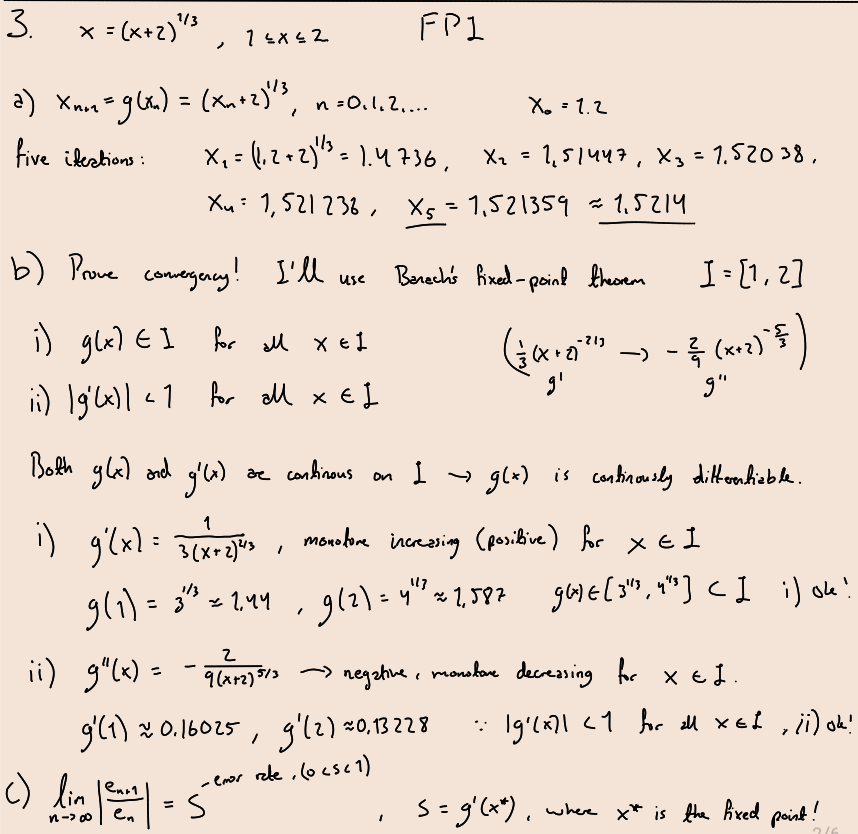 3. x = (x+2)^{1/3} , 1 ≤ x ≤ 2 FPI
a) x_{n+1} = g(x_n) = (x_n+2)^{1/3}, n = 0,1,2,... x_0 = 1.2
five iterations: x_1 = (1,2+2)^{1/3} = 1.4736, x_2 = 1,51447, x_3 = 1.52038,
x_4 = 1,521238, x_5 = 1,521359 ≈ 1,5214
b) Prove convergency! I'll use Banach's fixed-point theorem I = [1,2]
i) g(x) ∈ I for all x ∈ I (1/3 (x+2)^{-2/3} → -2/9 (x+2)^{-5/3})
g' g''
ii) |g'(x)| < 1 for all x ∈ I
Both g(x) and g'(x) are continous on I → g(x) is continously differentiable.
i) g'(x) = 1/(3(x+2)^{2/3}) , monotone increasing (positive) for x ∈ I
g(1) = 3^{1/3} ≈ 1,44 , g(2) = 4^{1/3} ≈ 1,587 g(x) ∈ [3^{1/3}, 4^{1/3}] ⊂ I i) ok!
ii) g''(x) = -2/(9(x+2)^{5/3}) → negative, monotone decreasing for x ∈ I.
g'(1) ≈ 0.16025 , g'(2) ≈ 0,13228 ∵ |g'(x)| < 1 for all x ∈ I , ii) ok!
c) lim_{n→∞} |e_{n+1}/e_n| = S - error rate, (0<s<1) , S = g'(x*) , where x* is the fixed point!
2/6